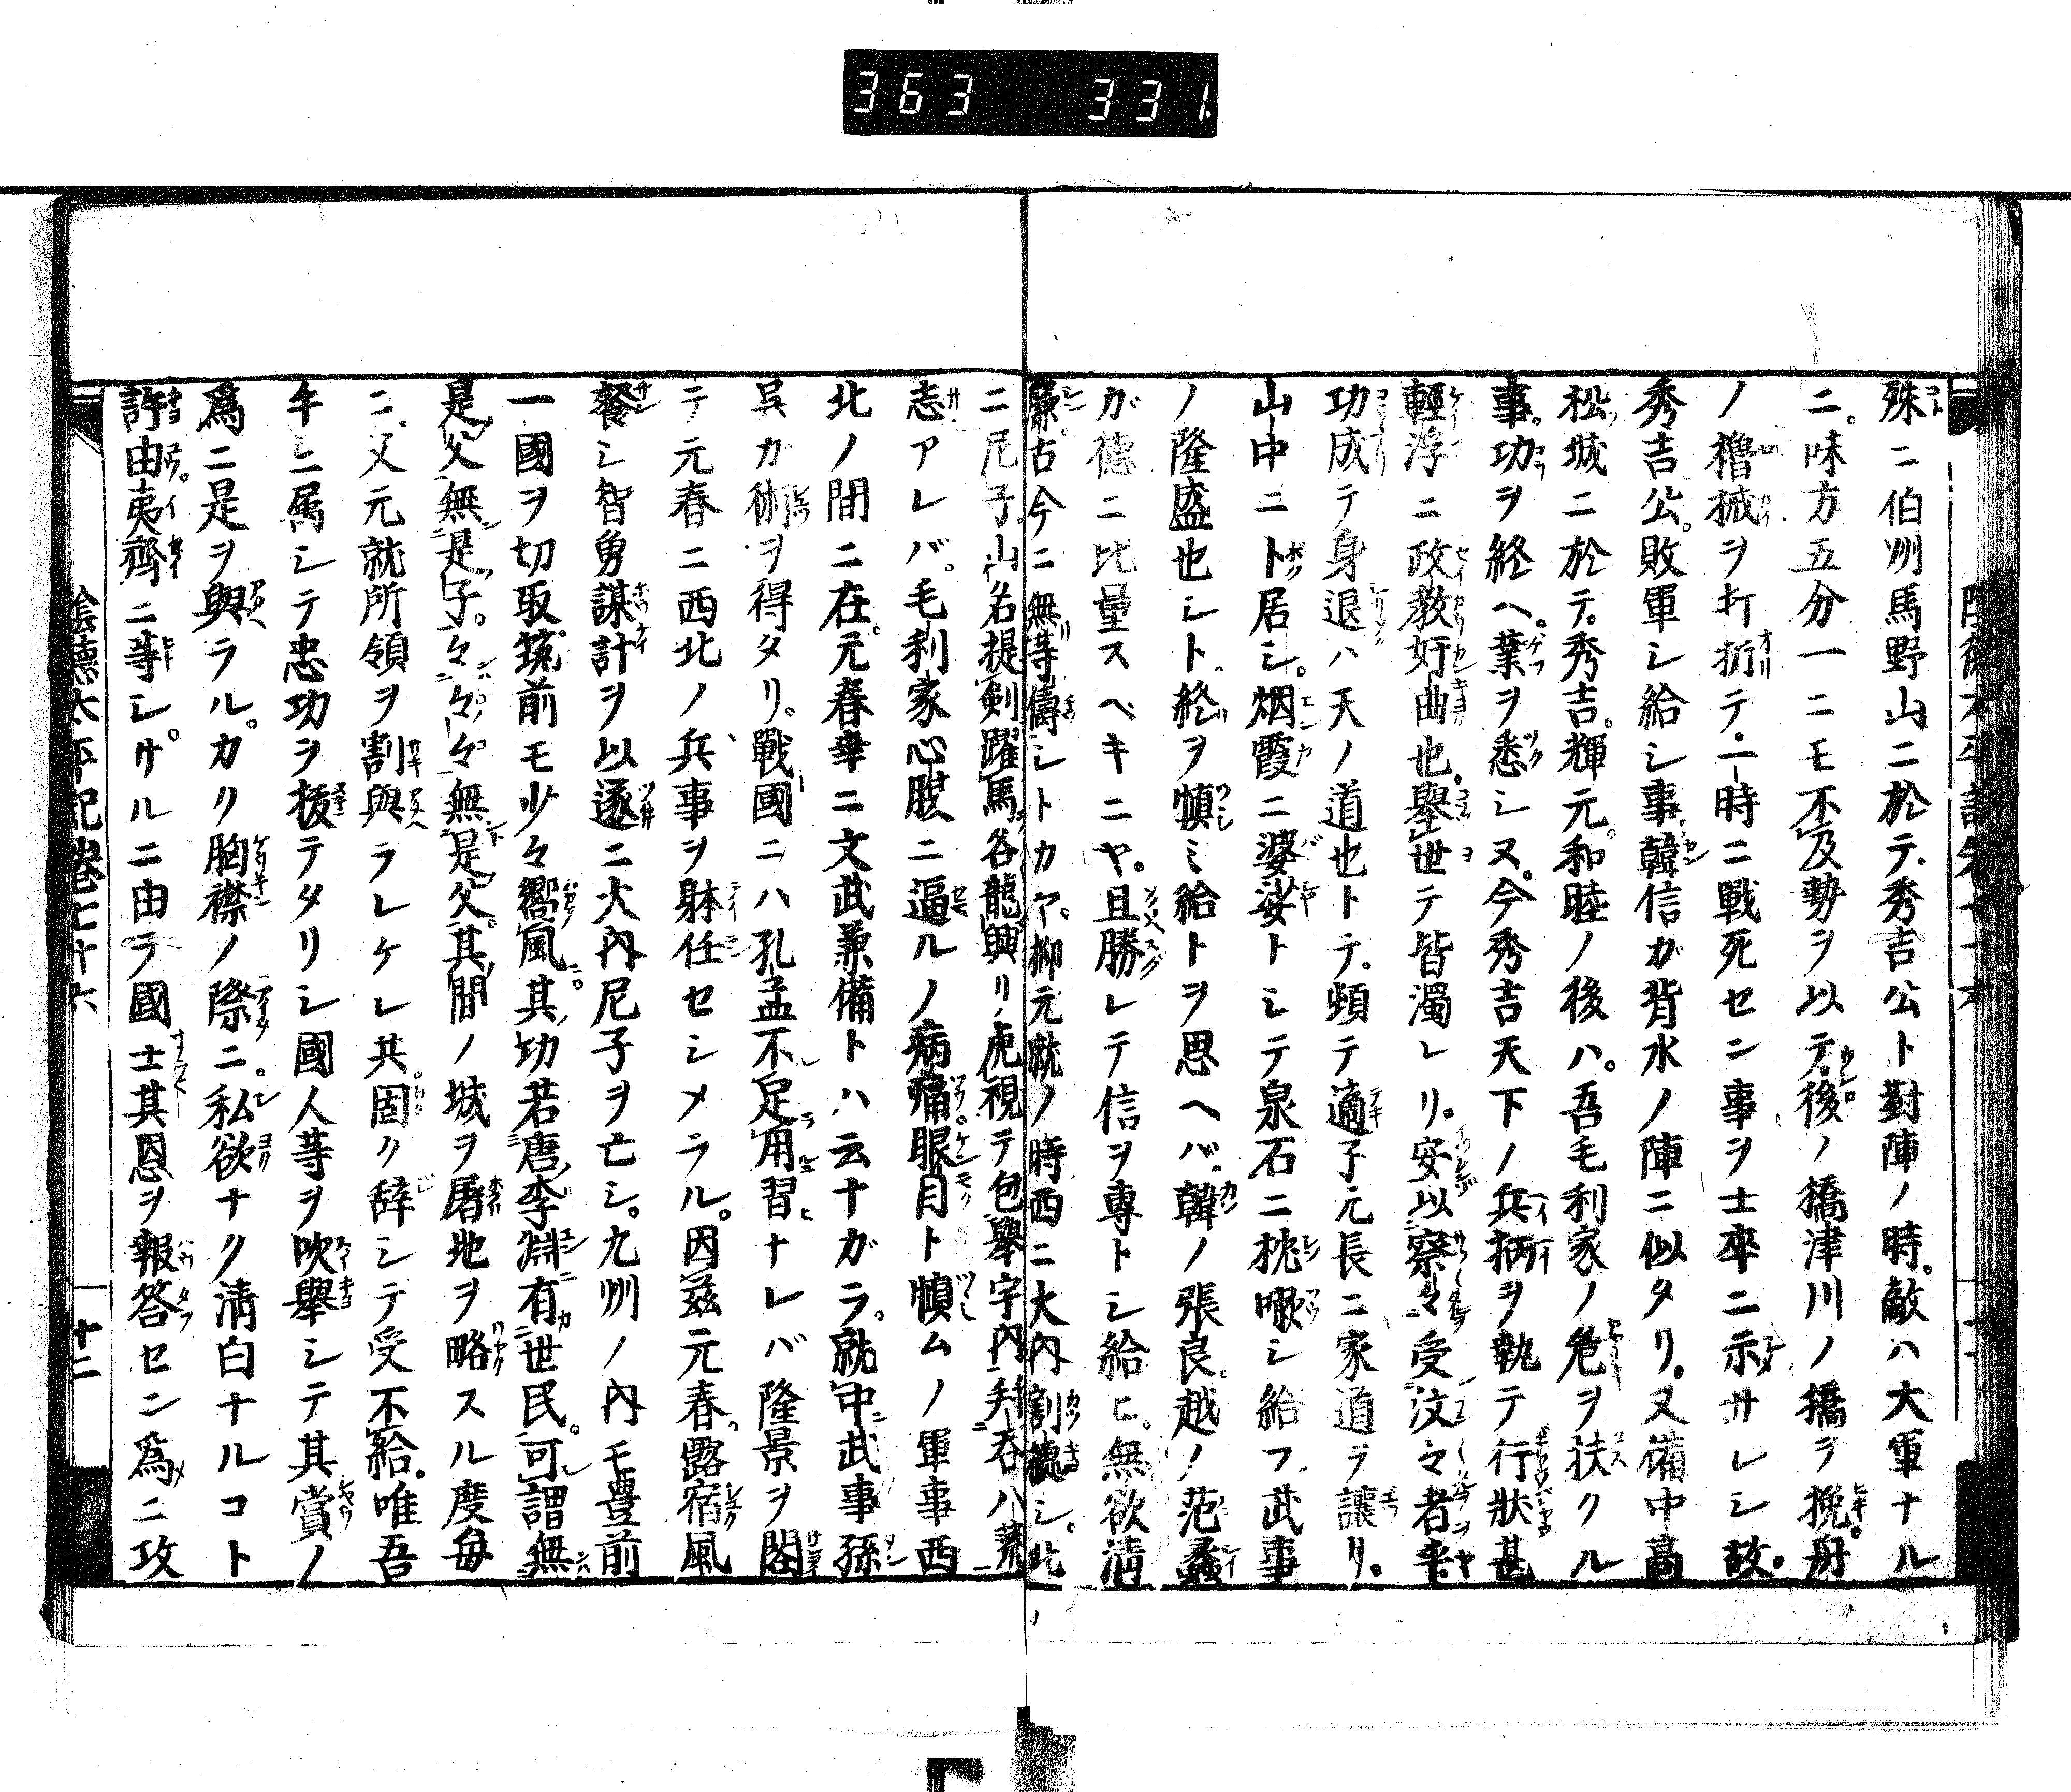 363 331
殊ニ伯州馬野山ニ於テ秀吉公ト對陣ノ時敵ハ大軍ナル
ニ味方五分一ニモ不及勢ヲ以テ後ノ橋津川ノ橋ヲ挽舟
ノ櫓械ヲ打折テ一時ニ戰死セン事ヲ士卒ニ示サレシ故
秀吉公敗軍シ給シ事韓信ガ背水ノ陣ニ似タリ又備中高
松城ニ於テ秀吉輝元和睦ノ後ハ吾毛利家ノ危ヲ扶クル
事功ヲ終ヘ業ヲ悉シヌ今秀吉天下ノ兵柄ヲ執テ行狀甚
輕浮ニ政教奸曲也舉世テ皆濁レリ安以察々受汶々者乎
功成テ身退ハ天ノ道也トテ頻テ適子元長ニ家道ヲ讓リ
山中ニト居シ烟霞ニ婆娑トシテ泉石ニ枕嗽シ給フ武事
ノ隆盛也シト終ヲ愼ミ給トヲ思ヘバ韓ノ張良越ノ范蠡
ガ德ニ比量スベキニヤ且勝レテ信ヲ專トシ給ヒ無欲清
廉古今ニ無等儔シトカヤ抑元就ノ時西ニ大内割據シ北
ニ尼子山名提劍躍馬各龍興リ虎視テ包舉宇内并吞八荒
志アレバ毛利家心腹ニ逼ルノ病痛眼目ト愼ムノ軍事西
北ノ間ニ在元春幸ニ文武兼備トハ云ナガラ就中武事孫
呉カ術ヲ得タリ戰國ニハ孔孟不足用習ナレバ隆景ヲ閣
テ元春ニ西北ノ兵事ヲ躰任セシメラル因茲元春露宿風
餐シ智勇謀計ヲ以遂ニ大内尼子ヲ亡シ九州ノ内モ豊前
一國ヲ切取筑前モ少々嚮風其功若唐李淵有世民可謂無
是父無是子々々々無是父其間ノ城ヲ屠地ヲ略スル度毎
ニ父元就所領ヲ割與ラレケレ共固ク辞シテ受不給唯吾
手ニ属シテ忠功ヲ拔テタリシ國人等ヲ吹舉シテ其賞ノ
爲ニ是ヲ與ラルカク胸襟ノ際ニ私欲ナク清白ナルコト
許由夷齊ニ等シサルニ由テ國士其恩ヲ報答セン爲ニ攻
陰德太平記卷七十六 十二